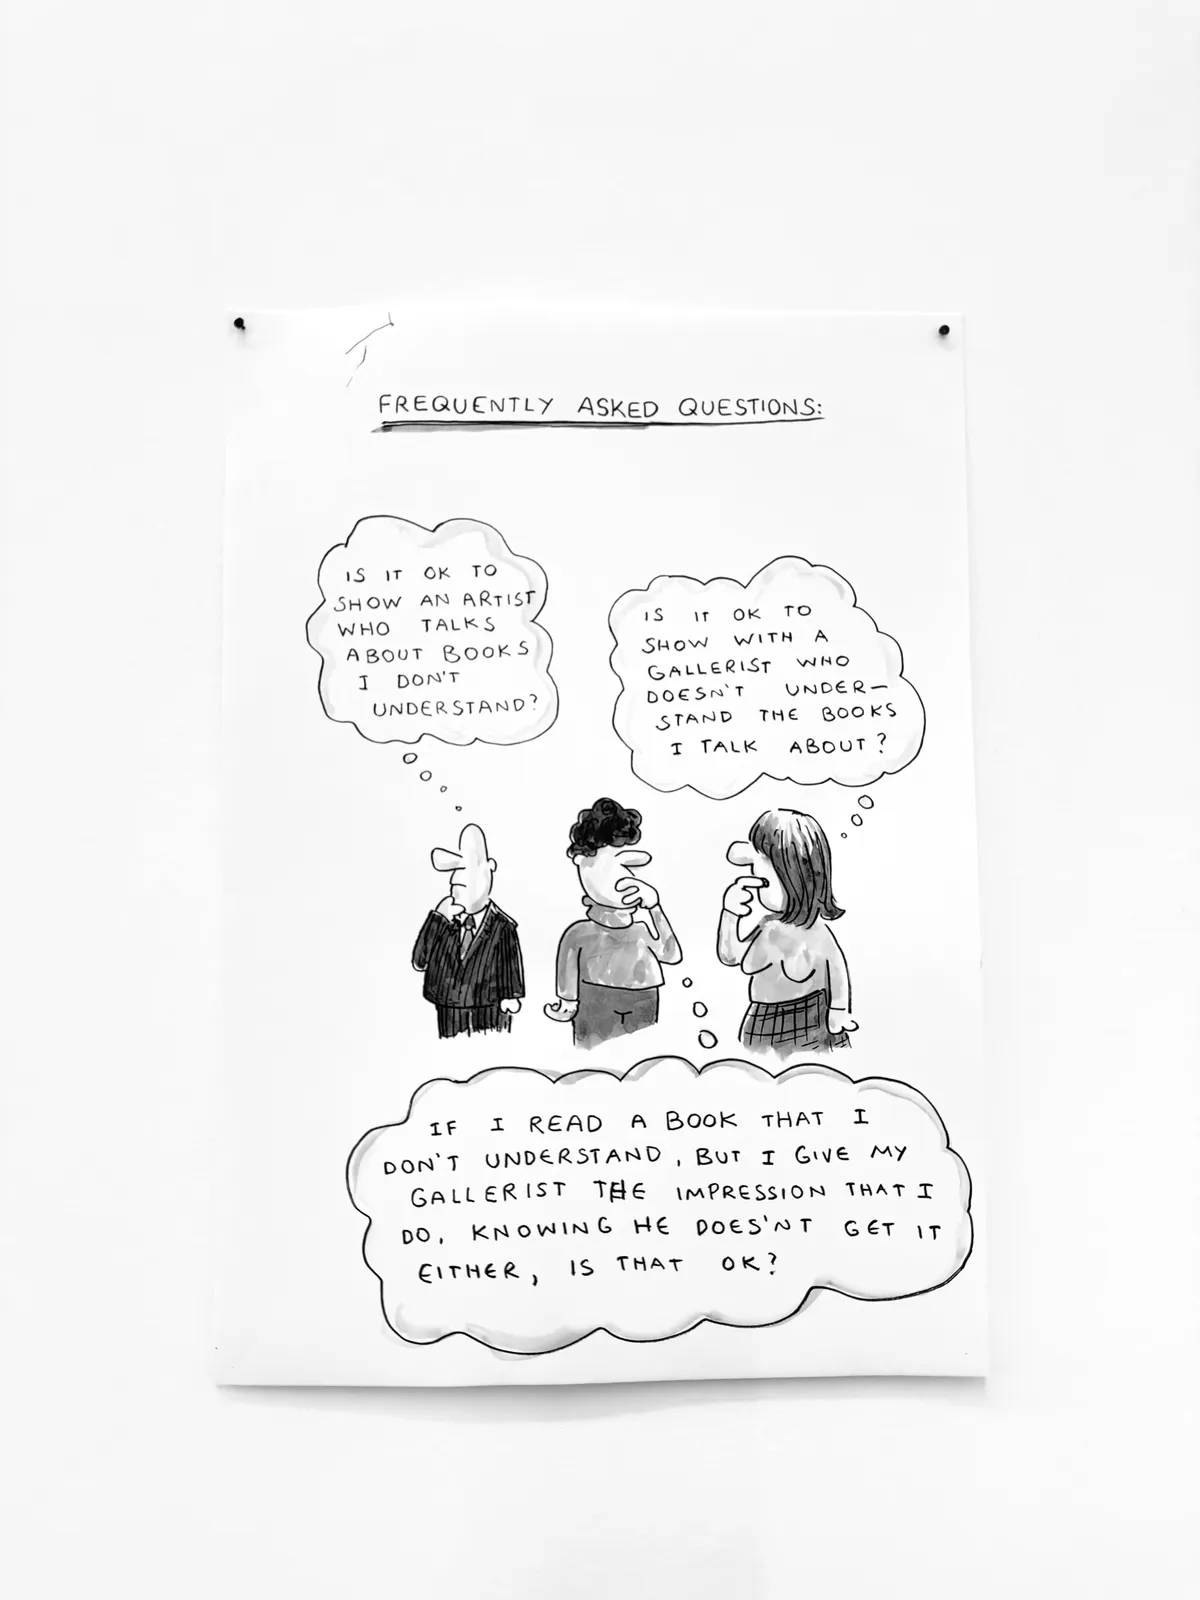 FREQUENTLY ASKED QUESTIONS:
IS IT OK TO
SHOW AN ARTIST
WHO TALKS
ABOUT BOOKS
I DON'T
UNDERSTAND?
IS IT OK TO
SHOW WITH A
GALLERIST WHO
DOESN'T UNDER-
STAND THE BOOKS
I TALK ABOUT?
IF I READ A BOOK THAT I
DON'T UNDERSTAND, BUT I GIVE MY
GALLERIST THE IMPRESSION THAT I
DO, KNOWING HE DOES'NT GET IT
EITHER, IS THAT OK?